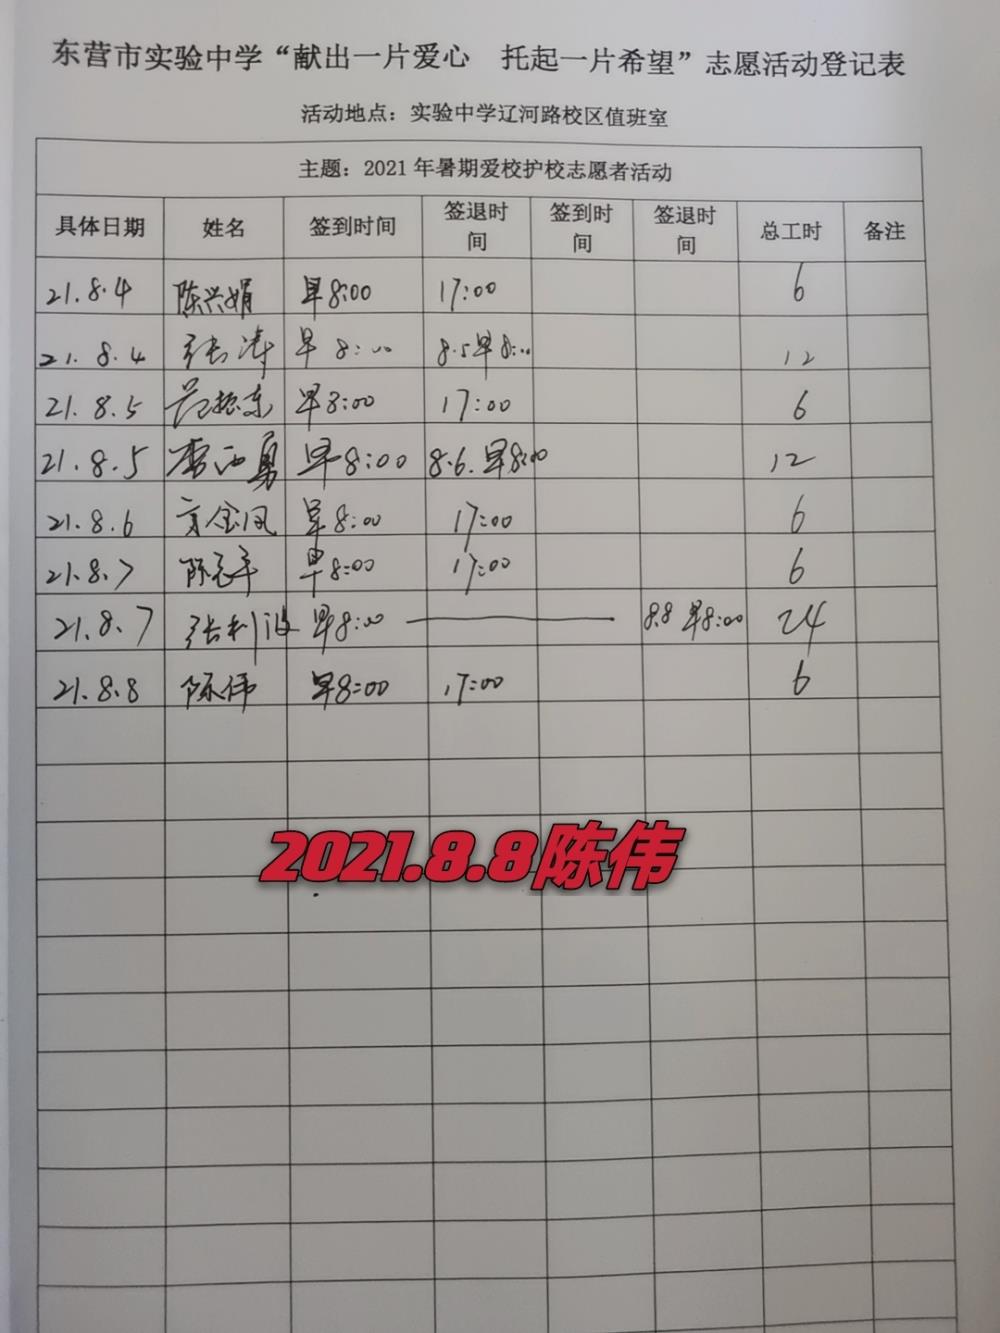 东营市实验中学“献出一片爱心 托起一片希望”志愿活动登记表
活动地点：实验中学辽河路校区值班室
主题：2021年暑期爱校护校志愿者活动
具体日期 姓名 签到时间 签退时间 签到时间 签退时间 总工时 备注
21.8.4 陈兴娟 早8:00 17:00 6
21.8.4 张涛 早8:00 8.5早8:00 12
21.8.5 范振东 早8:00 17:00 6
21.8.5 勇 早8:00 8.6.早8:00 12
21.8.6 金凤 早8:00 17:00 6
21.8.7 陈 早8:00 17:00 6
21.8.7 张利波 早8:00 8.8 早8:00 24
21.8.8 陈伟 早8:00 17:00 6
2021.8.8陈伟